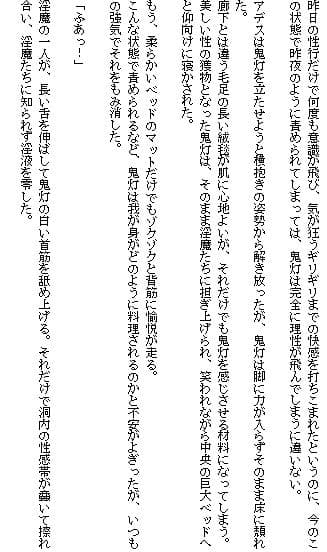 昨日の性行だけで何度も意識が飛び、気が狂うギリギリまでの快感を打ちこまれたというのに、今のこ
の状態で昨夜のように責められてしまっては、鬼灯は完全に理性が飛んでしまうに違いない。
アデスは鬼灯を立たせようと横抱きの姿勢から解き放ったが、鬼灯は脚に力が入らずそのまま床に頽れ
た。
廊下とは違う毛足の長い絨毯が肌に心地よいが、それだけでも鬼灯を感じさせる材料になってしまう。
美しい性の獲物となった鬼灯は、そのまま淫魔たちに担ぎ上げられ、笑われながら中央の巨大ベッドへ
と仰向けに寝かされた。
もう、柔らかいベッドのマットだけでもゾクゾクと背筋に愉悦が走る。
こんな状態で責められるなど、鬼灯は我が身がどのように料理されるのかと不安がよぎったが、いつも
の強気でそれをもみ消した。
「ふあっ…」
淫魔の一人が、長い舌を伸ばして鬼灯の白い首筋を舐め上げる。それだけで洞内の性感帯が蠢いて擦れ
合い、淫魔たちに知られず淫液を零した。